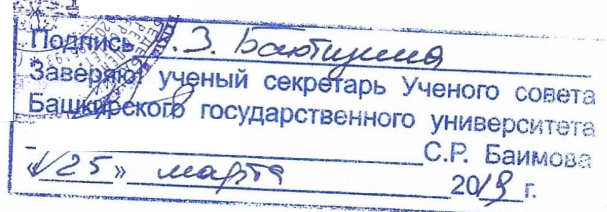 Подпись З. Бактизина
Заверяю: ученый секретарь Ученого совета
Башкирского государственного университета
С.Р. Баимова
«25» марта 2019 г.